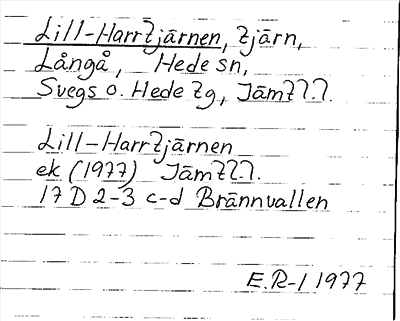 Lill-Harrtjärnen, tjärn,
Långå, Hede sn,
Svegs o. Hede tg, Jämtl.
Lill-Harrtjärnen
ek (1977) Jämtl.
17 D 2-3 c-d Brännvallen
E.R-l 1977